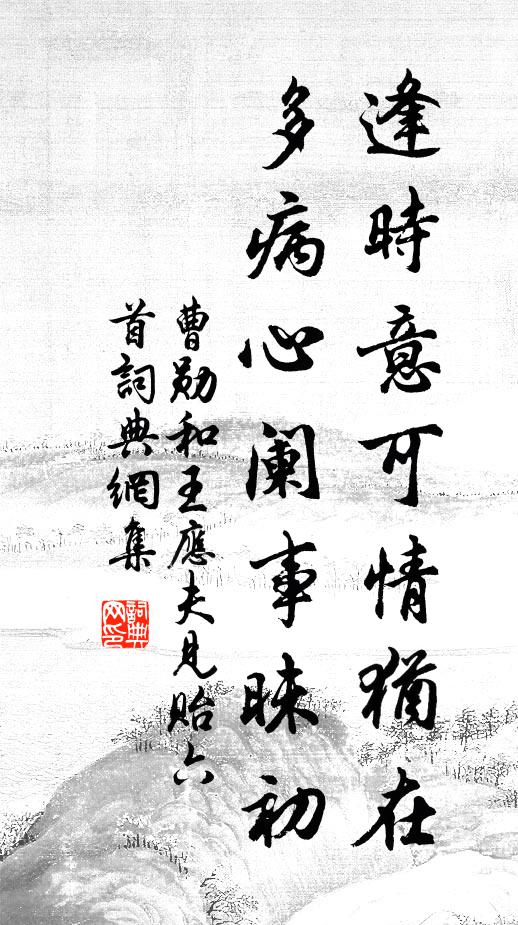 逢時意可情猶在
多病心闌事昧初
曹勛和王應夫見貽六
首詞典網集
詞典
网印